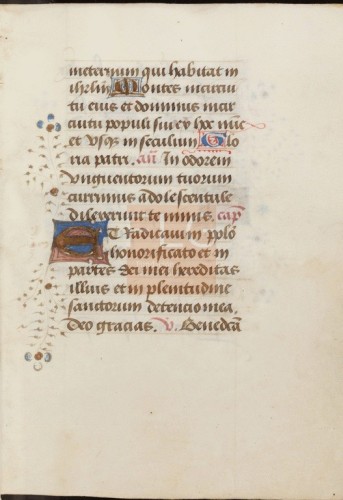 ineternum qui habitat in
ihrlm Montes incircui
tu eius et dominus incir
cuitu populi sui ex hoc nūc
et vsqȝ in seculum Glo
ria patri. añ. In odorem
vnguentorum tuorum
currimus adolescentule
dilexerunt te nimis. capˡ
Et Radicaui in pplo
honorificato et in
partes dei mei hereditas
illius et in plenitudine
sanctorum detencio mea.
Deo gracias. v. Benedcā